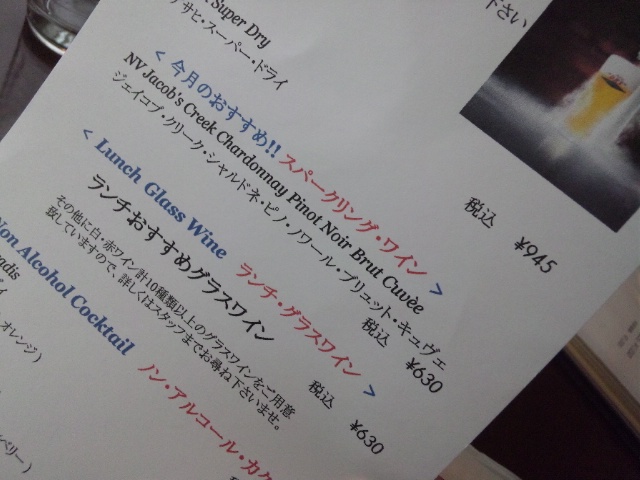 Super Dry
アサヒ・スーパー・ドライ
下さい
税込 ¥945
< 今月のおすすめ!! スパークリング・ワイン >
NV Jacob's Creek Chardonnay Pinot Noir Brut Cuvèe
ジェイコブ・クリーク・シャルドネ・ピノ・ノワール・ブリュット・キュヴェ
税込 ¥630
< Lunch Glass Wine ランチ・グラスワイン >
ランチおすすめグラスワイン
税込 ¥630
その他に白・赤ワイン計10種類以上のグラスワインをご用意
致していますので、詳しくはスタッフまでお尋ね下さいませ。
Non Alcohol Cocktail ノン・アルコール・カク
オレンジ)